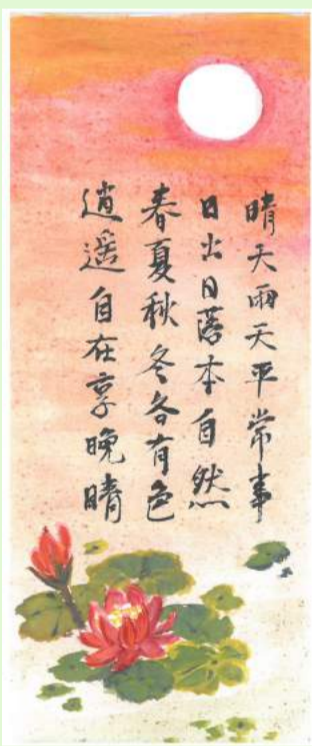 晴天雨天平常事
日出日落本自然
春夏秋冬各有色
逍遥自在享晚晴